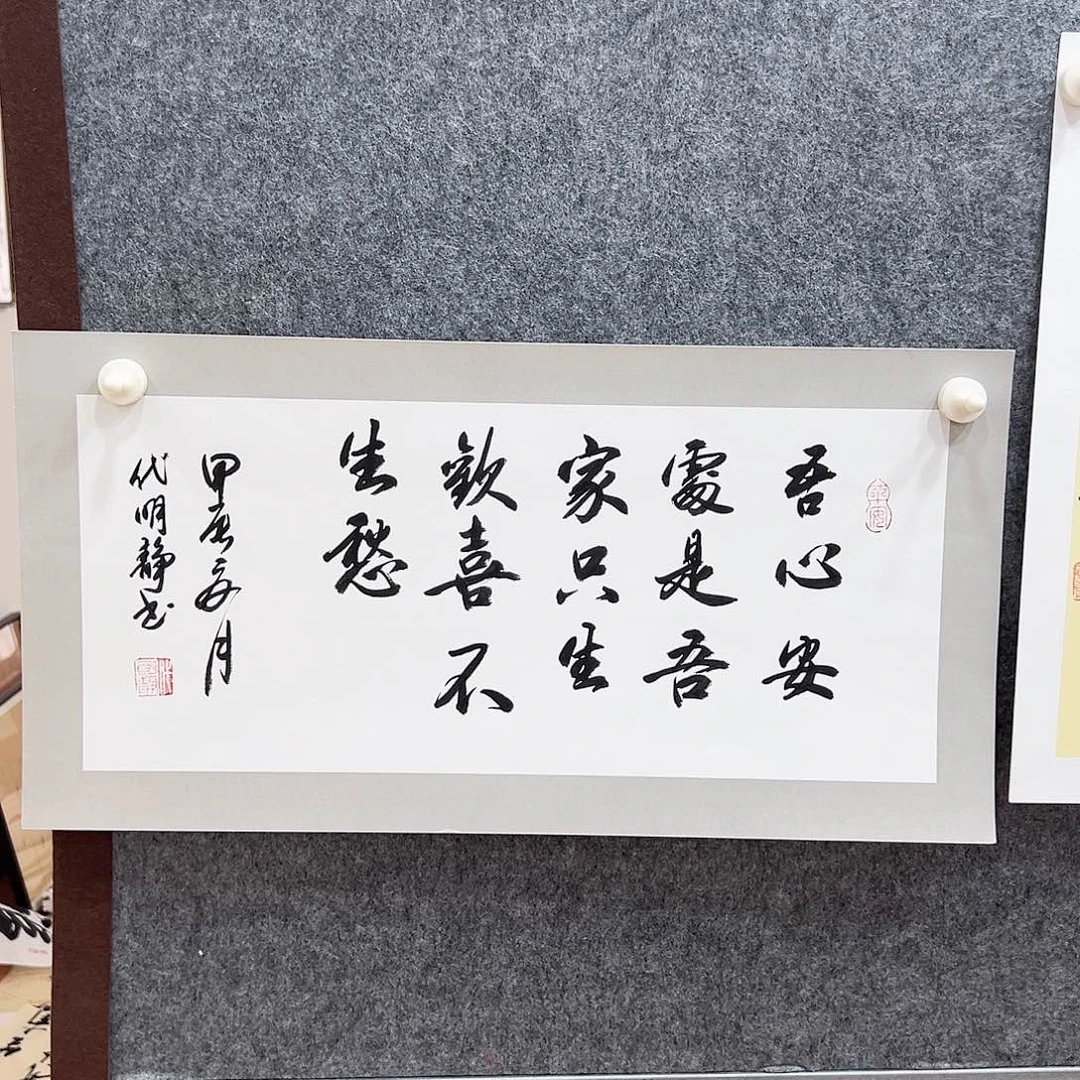 吾心安
處是吾
家只生
歡喜不
生愁
甲辰夏月
代明静书